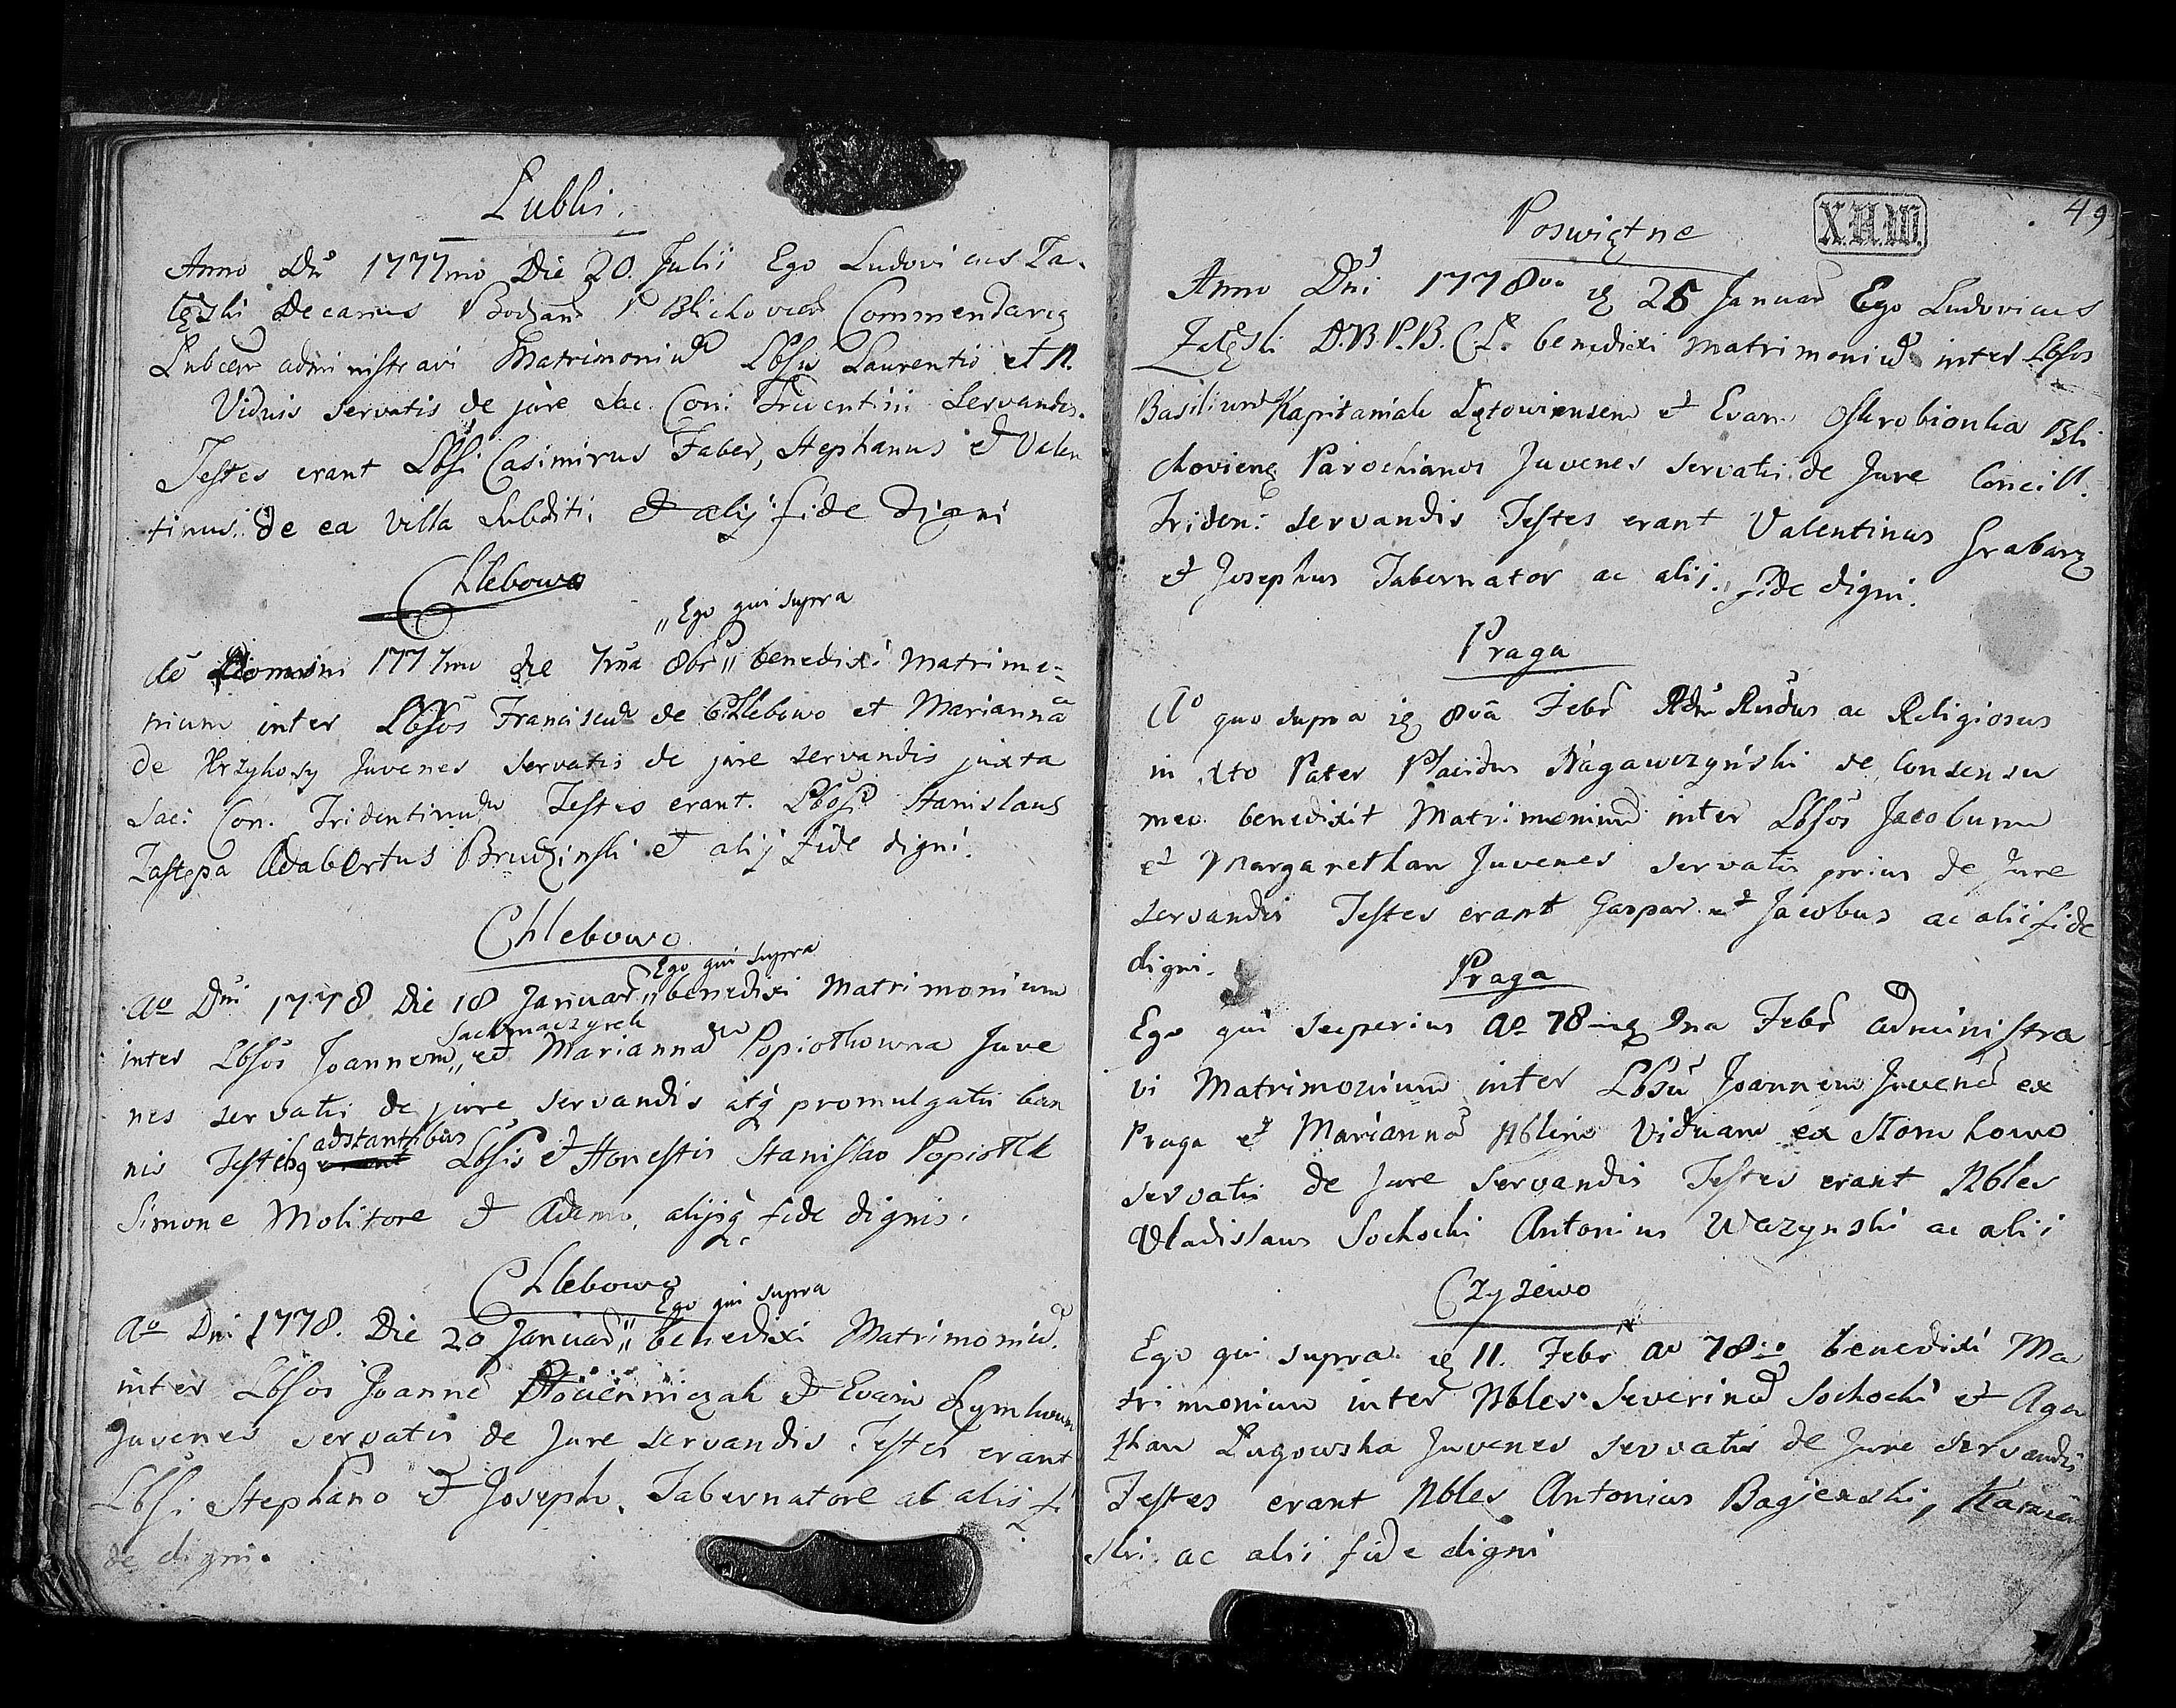 Lubki.
Anno Dni 1777mo Die 20. Julii Ego Ludovicus Za-
lęski Decanus Bodzan. P Blichovien Commendariq
Lubcen administravi Matrimoniu Lbsis Laurentio et N.
Viduis servatis de jure Sac. Con: Trientini Servandis.
Testes erant Lbsi Casimirus Faber, Stephanus et Valen
tinus. de ea villa Subditi, et alij fide digni
Chlebowo
Ao Domini 1777mo die 7ma 8br „ Ego qui supra „ benedixi Matrimo-
nium inter Lbsos Franciscu de Chlebowo et Marianna
de Krzykosy Juvenes servatis de jure servandis juxta
Sac: Con. Tridentinu Testes erant. Lbosi Stanislaus
Zastępa Adalbertus Brudzinski et alij fide digni.
Chlebowo
Ao Dni 1778 Die 18 Januar „ Ego qui supra benedixi Matrimonium
inter Lbsos Joannem „ et Marianna Popiołkowna Juve
nes servatis de jure servandis atq promulgatis ban
nis Testibq erant adstantibus Lbsis et Honestis Stanislao Popiołek
Simone Molitore et Adamo, alijsq fide dignis.
Chlebowo
Ao Dni 1778. Die 20 Januar „ Ego qui supra benedixi Matrimoniu.
inter Lbsos Joanne et Evam
Juvenes servatis de Jure servandis. Testes erant
Lbsi Stephano et Joseph. Tabernatore ac alis fi
de digni.
49
X.A.W.
Poswiętne
Anno Dni 1778vo 25 Januar Ego Ludovicus
Zalęski D.B.P.B.C.L. benedixi matrimoniu inter Lbsos
Basilium Kapitaniak et Evam Oskrobionka Bli
chovienq Parochianos Juvenes servatis de Jure Concill.
Triden: servandis Testes erant Valentinus Grabarz
et Josephus Tabernator ac alii. fide digni.
Praga
Ao quo supra 8va Febr Adm Rndus ac Religiosus
in Xto Pater Placidus Nagawczyński de Consensu
meo benedixit Matrimonium inter Lbsos Jacobum
et Margaretham Juvenes servatis prius de Jure
servandis Testes erant Gaspar et Jacobus ac alii fide
digni.
Praga
Ego qui superius Ao 78 Febr administra
vi Matrimonium inter Lbsu Joannem Juvene ex
Praga et Marianna Nblem Viduam ex Słomkowo
servatis de Jure servandis Testes erant Nbles
Vladislaus Sochocki Antonius Wazynski ac alii
Czyżewo
Ego qui supra 11. Febr Ao 78 benedixi Ma
trimonium inter Nbles Severinu Sochocki et Aga
tham Ługowska Juvenes servatis de Jure servandis
Testes erant Nbles Antonius
ski ac alii fide digni